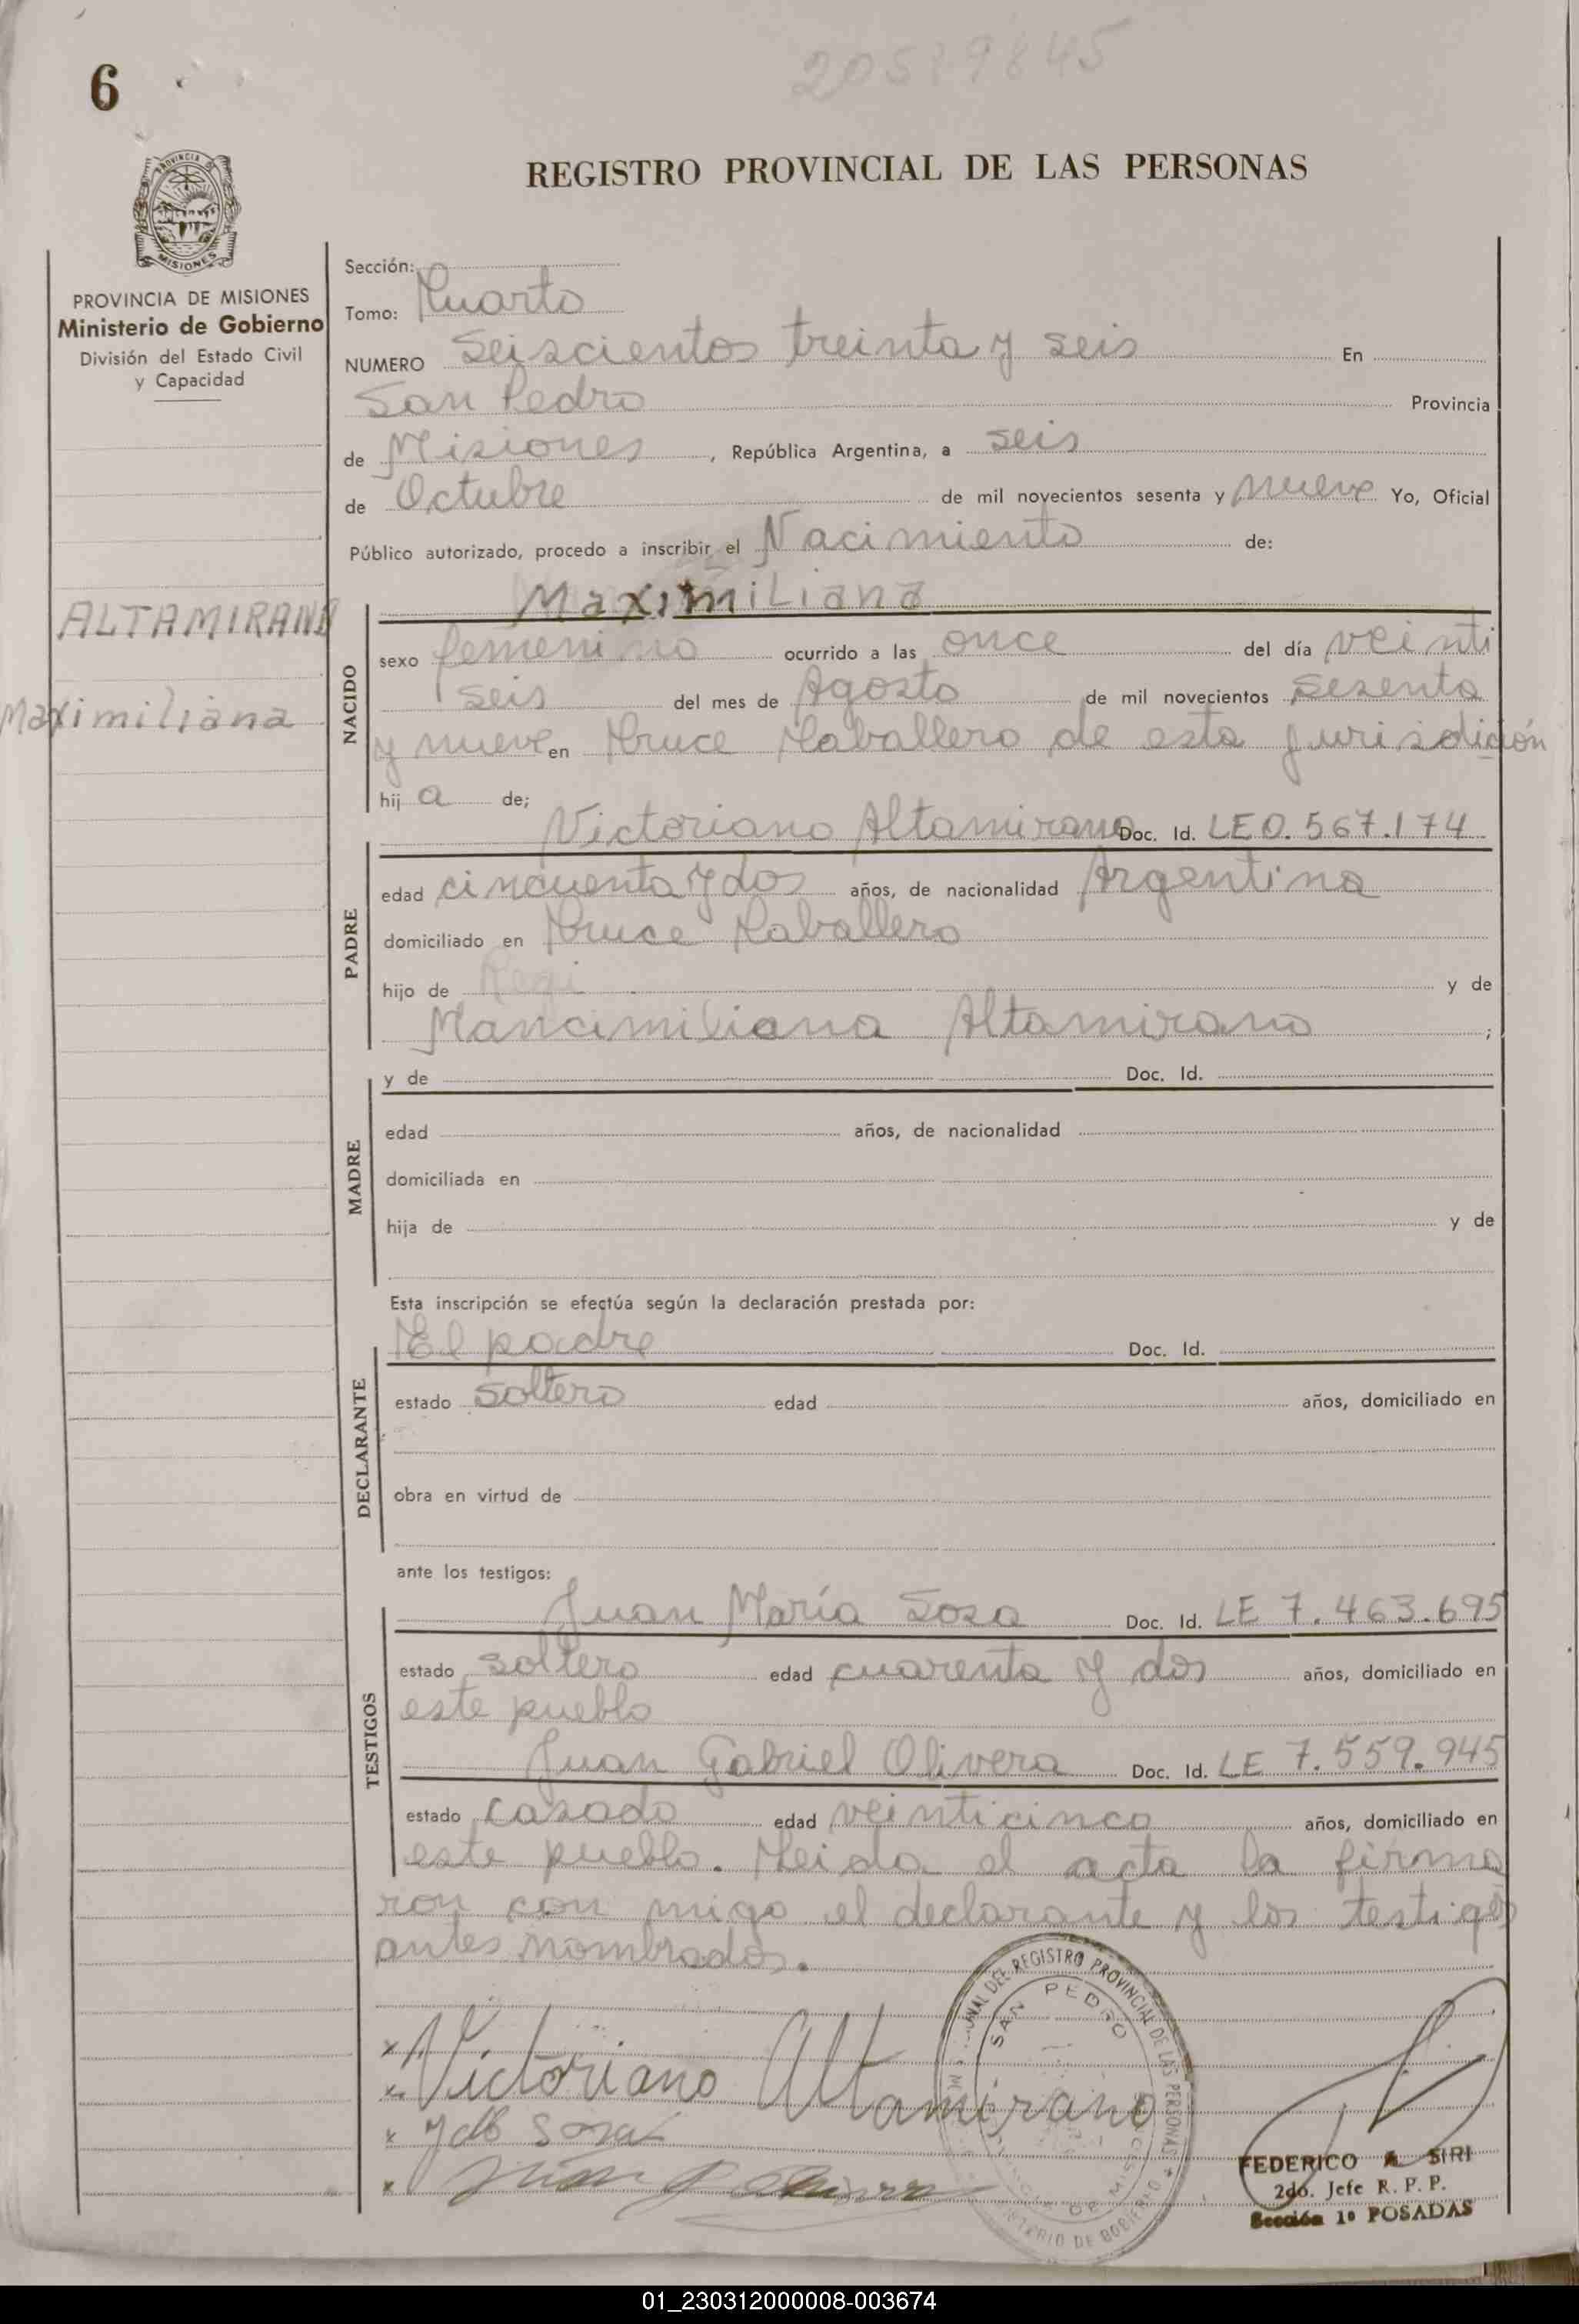 6
REGISTRO PROVINCIAL DE LAS PERSONAS
PROVINCIA DE MISIONES
Ministerio de Gobierno
División del Estado Civil
y Capacidad
ALTAMIRANO
Maximiliana
Sección:
Tomo: Cuarto
NUMERO Seiscientos treinta y seis En
San Pedro Provincia
de Misiones, República Argentina, a seis
de Octubre de mil novecientos sesenta y nueve Yo, Oficial
Público autorizado, procedo a inscribir el Nacimiento de:
Maximiliana
NACIDO
sexo femenino ocurrido a las once del día veinti
seis del mes de Agosto de mil novecientos sesenta
y nueve en Cruce Caballero de esta jurisdición
hija de;
Victoriano Altamirano Doc. Id. LE 0.567.174
PADRE
edad cincuenta y dos años, de nacionalidad Argentina
domiciliado en Cruce Caballero
hijo de y de
Mancimiliana Altamirano ;
MADRE
y de Doc. Id.
edad años, de nacionalidad
domiciliada en
hija de y de
Esta inscripción se efectúa según la declaración prestada por:
DECLARANTE
El padre Doc. Id.
estado soltero edad años, domiciliado en
obra en virtud de
ante los testigos:
TESTIGOS
Juan María Sosa Doc. Id. LE 7.463.695
estado soltero edad cuarenta y dos años, domiciliado en
este pueblo
Juan Gabriel Olivera Doc. Id. LE 7.559.945
estado casado edad veinticinco años, domiciliado en
este pueblo. Leida el acta la firma
ron con migo el declarante y los testigos
antes nombrados.
x Victoriano Altamirano
SAN PEDRO
FEDERICO A. SIRI
2do. Jefe R. P. P.
Sección 1º POSADAS
01_230312000008-003674